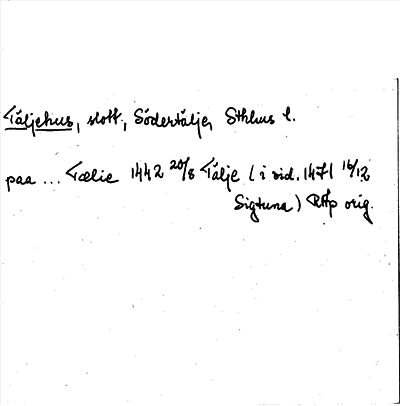 Täljehus, slott, Södertälje, Sthlms l.
paa ... Tælie 1442 20/8 Tälje (i vid. 1471 16/12
Sigtuna) RAp orig.